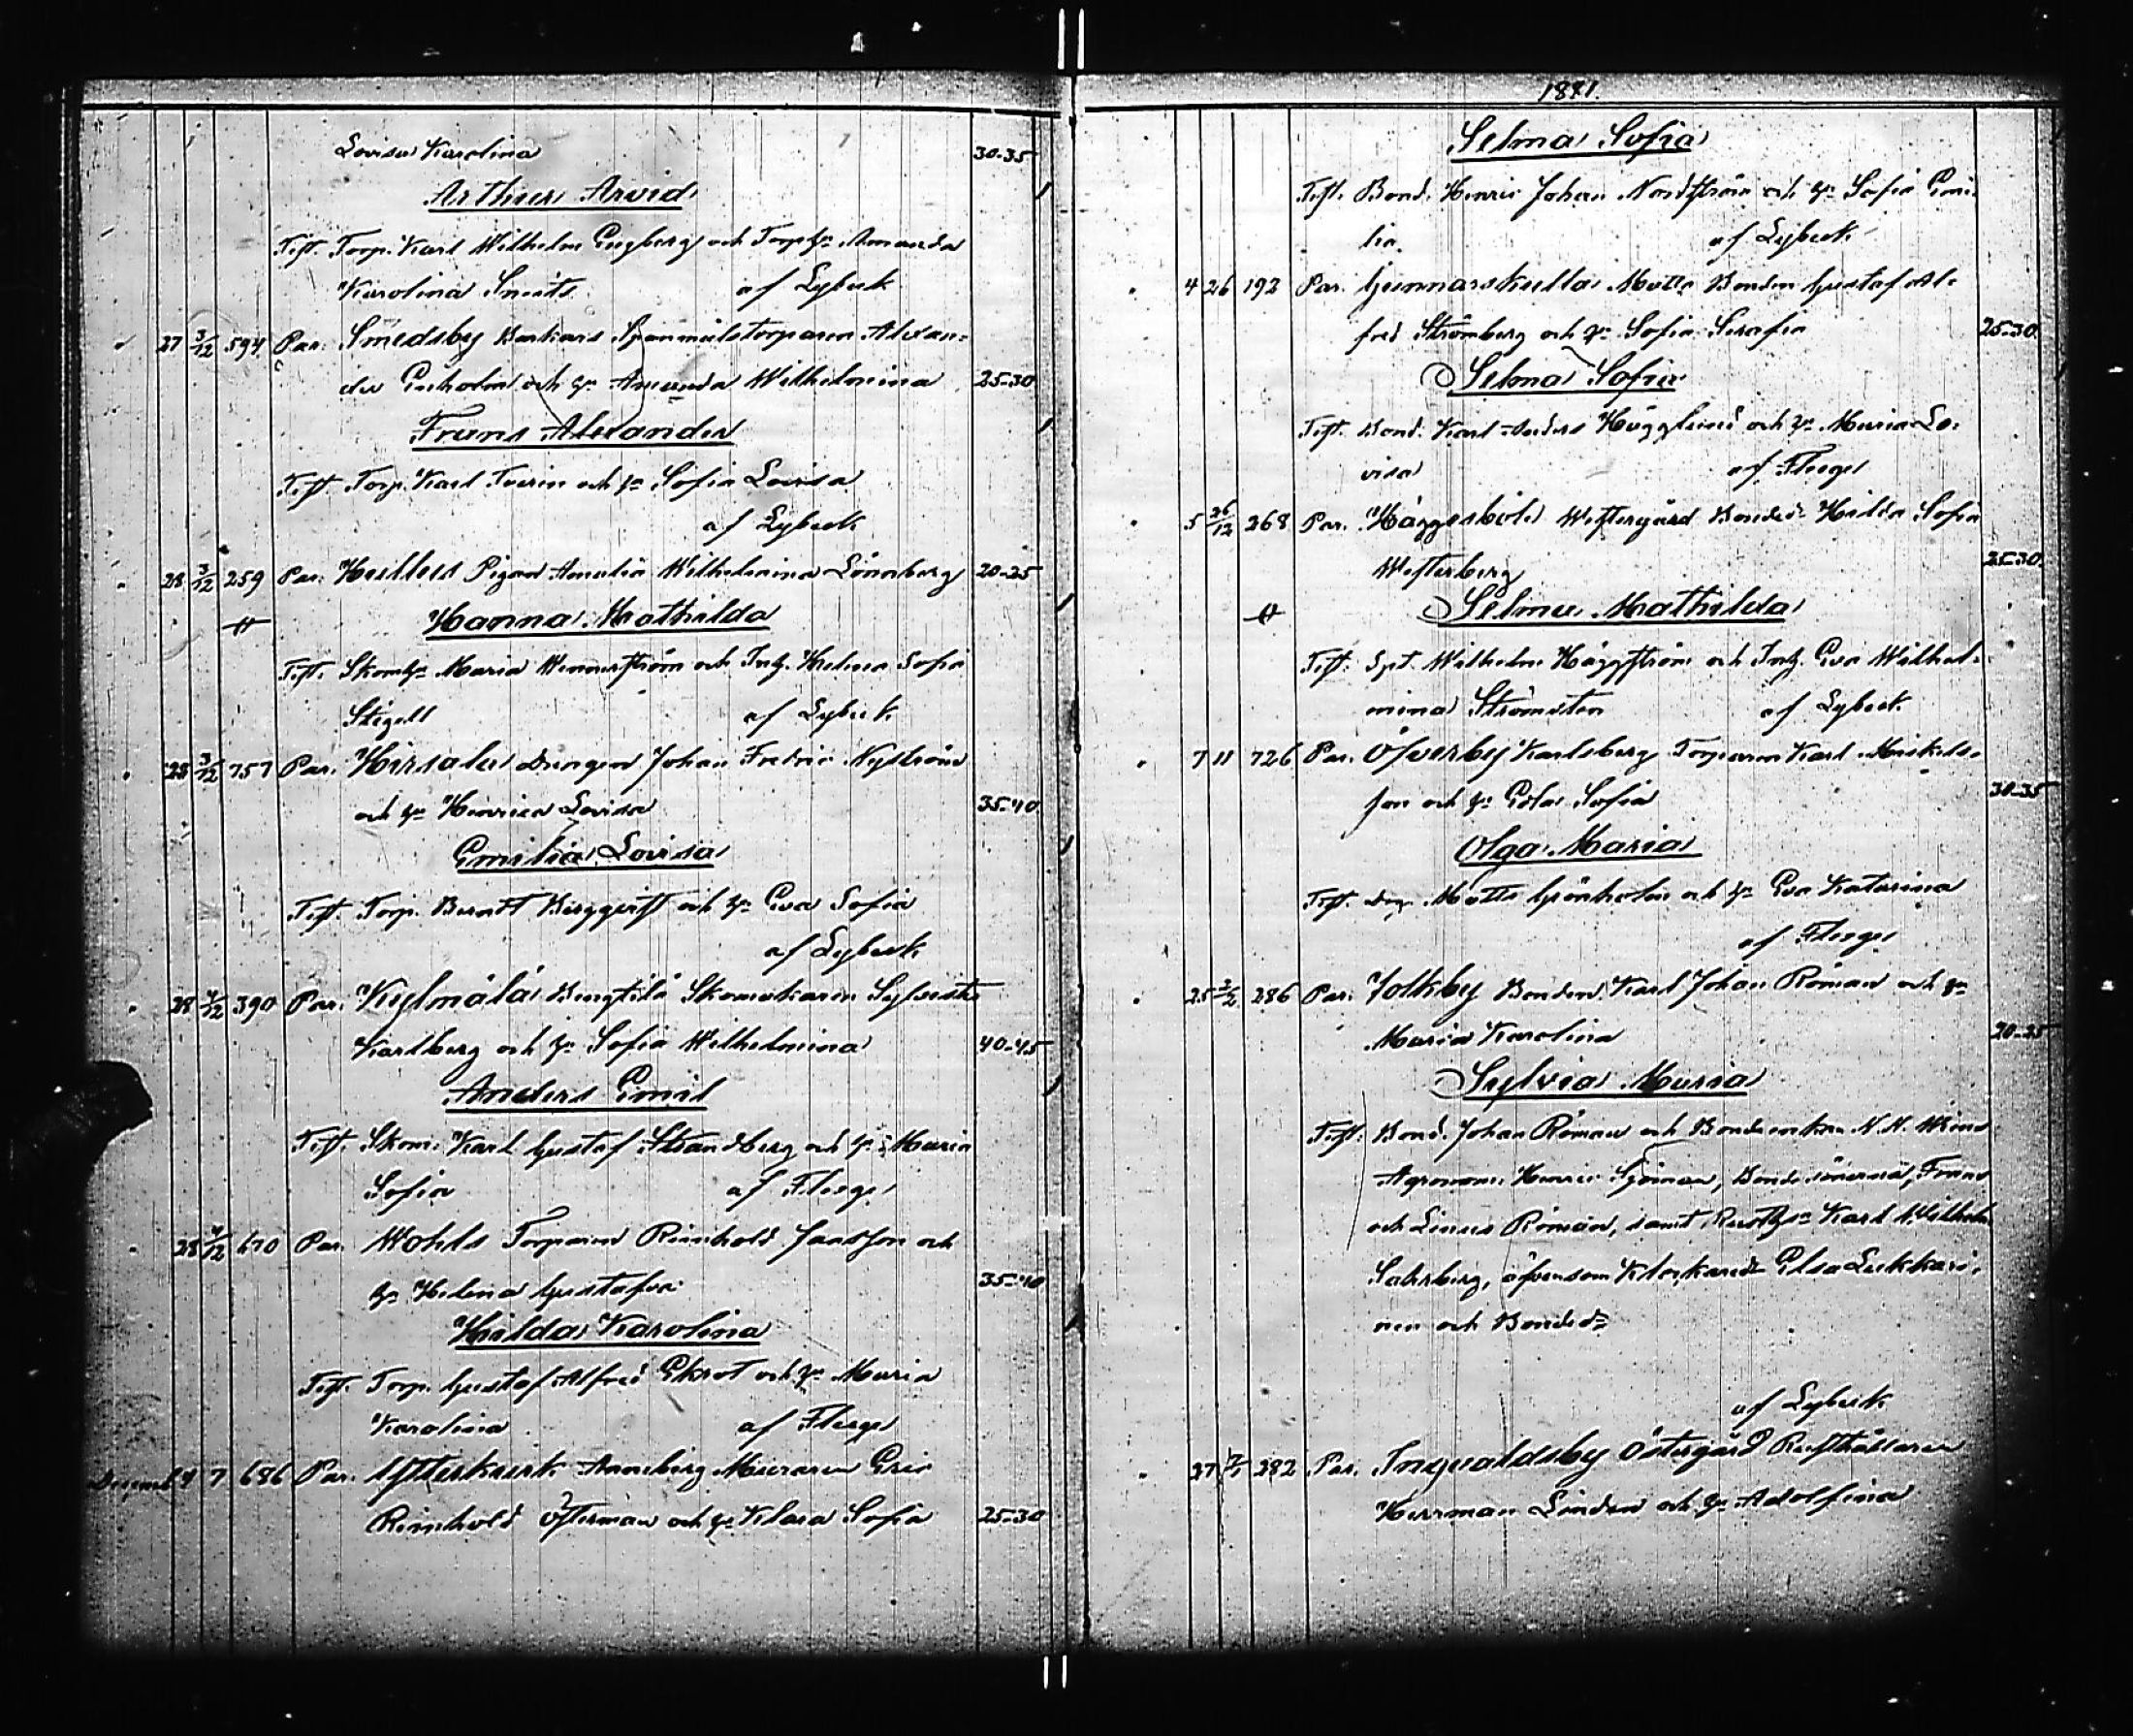 Lovisa Karolina 30-35
Arthur Arvid
Test. Torp. Karl Wilhelm Engberg och Torph Amanda
Karolina Smits af Lybeck
27 3/12 594 Par: Smedsby Backars Spanmålstorparen Alexan-
der Ekholm och h Amanda Wilhelmina 25-30
Frans Alexander
Test Torp. Karl Tverin och h Sofia Lovisa
af Lybeck
28 3/12 259 Par: Pigan Amalia Wilhelmina Lönnberg 20-25
Hanna Mathilda
Test. Skomh Maria Wennerström och Inh. Helena Sofia
Stigell af Lybeck
28 3/12 757 Par. Hirsala Drengen Johan Fredric Nyström
och h Henrica Lovisa 35-40
Emilia Lovisa
Test. Torp. Berndt Bergqvist och h Eva Sofia
af Lybeck
28 4/12 390 Par. Kylmälä Bengtilä Skomakaren Sylvester
Karlberg och h Sofia Wilhelmina 40-45
Anders Emil
Test. Skom. Karl Gustaf Strandberg och h Maria
Sofia af Flege
28 4/12 670 Par. Wohls Torparen Reinhold Jansson och
h Helena Gustafva 35-40
Hilda Karolina
Test. Torp. Gustaf Alfred Ekrot och h Maria
Karolina af Flege
Decemb 4 7 686 Par. Ytterkurk Anneberg Muraren Eric
Reinhold Österman och h Klara Sofia 25-30
1881.
Selma Sofia
Test. Bond. Henric Johan Nordström och h Sofia Emi-
lia af Lybeck
4 26 192 Par. Gunnarskulla Matts Bonden Gustaf Al-
fred Strömberg och h Sofia Serafia 25-30
Selma Sofia
Test. Bond. Karl Anders Hägglund och h Maria Lo-
visa af Flege
5 26/12 268 Par. Häggesböle Westergård Bonded Hilda Sofia
Westerberg 25-30
Selma Mathilda
Test. Spt. Wilhelm Häggström och Inh. Eva Wilhel-
mina Strömsten af Lybeck
7 11 726 Par. Öfverby Karlsberg Torparen Karl Mickels-
son och h Edla Sofia 30-35
Olga Maria
Test. Drg. Matts Grönholm och h Eva Katarina
af Flege
25 2/2 286 Par. Jolkby Bonden Karl Johan Röman och h
Maria Karolina 20-25
Sylvia Maria
Test. Bond. Johan Röman och Bondeenkan N.N. Wind
Agronom Henric Sjöman, Bondesönerna, Frans
och Linus Röman, samt Rusth Karl Wilhelm
Sahrberg, äfvensom Klockared Elsa Lukkari-
nen och Bonded
af Lybeck
27 282 Par. Ingvaldsby Östergård Rusthållaren
Herman Linden och h Adolfina